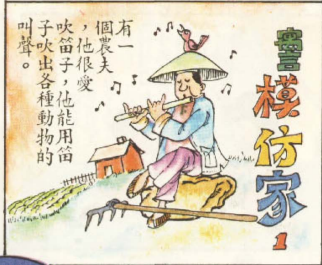 寓言
模仿家
1
有一
個農夫
，他很愛
吹笛子，他能用笛
子吹出各種動物的
叫聲。